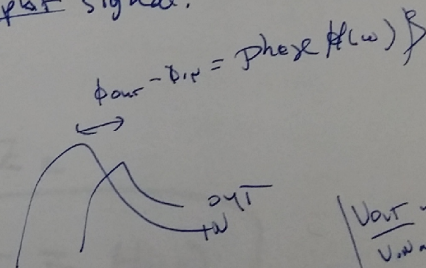 signal.
ϕout - ϕin = phase {H(ω)}
OUT
IN
|Vout
Vin